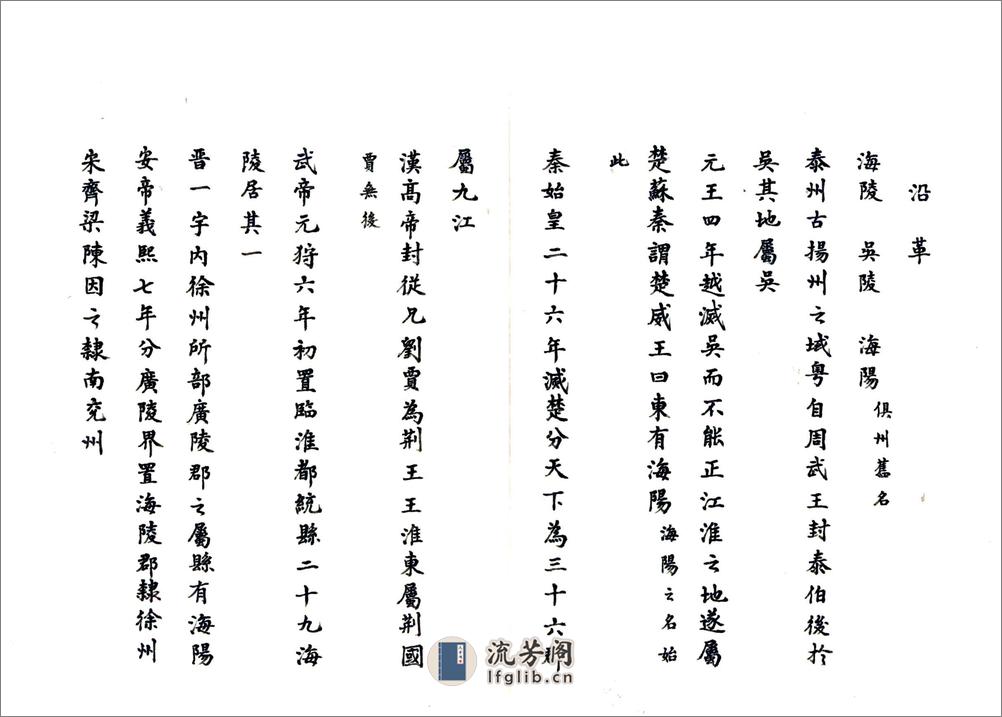 沿革
海陵 吳陵 海陽 俱州舊名
泰州古揚州之域粤自周武王封泰伯後於
吳其地屬吳
元王四年越滅吳而不能正江淮之地遂屬
楚蘇秦謂楚威王曰東有海陽 海陽之名始
此
秦始皇二十六年滅楚分天下為三十六郡
屬九江
漢高帝封從兄劉賈為荆王王淮東屬荆國
賈無後
武帝元狩六年初置臨淮都統縣二十九海
陵居其一
晋一字內徐州所部廣陵郡之屬縣有海陽
安帝義熙七年分廣陵界置海陵郡隸徐州
宋齊梁陳因之隸南兖州
流芳阁
lfglib.cn